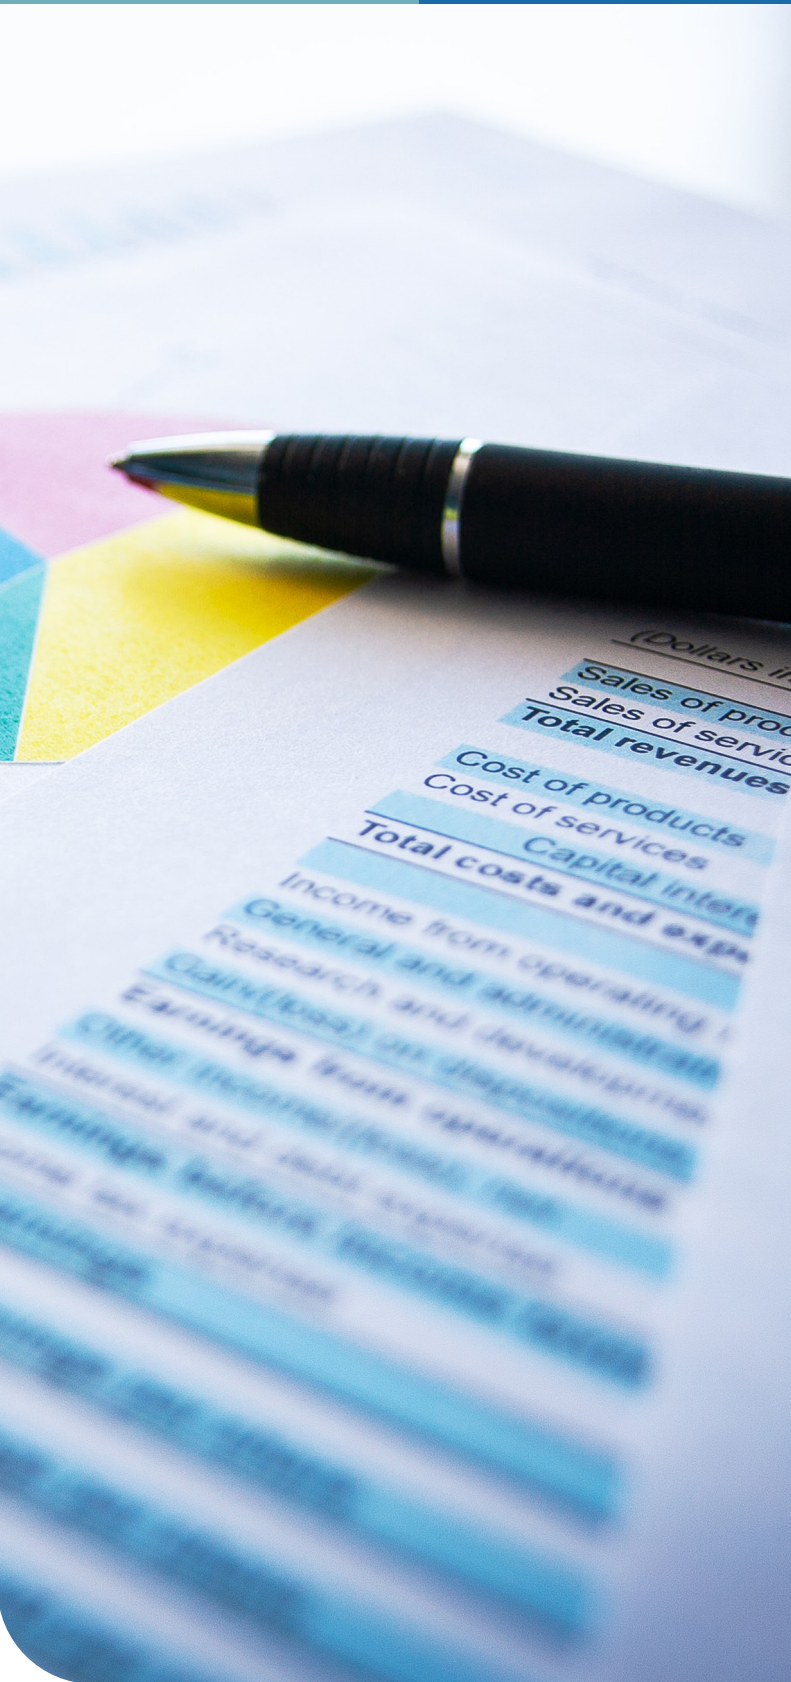 (Dollars in
Sales of prod
Sales of servic
Total revenues
Cost of products
Cost of services
Capital intere
Total costs and expe
Income from operating
General and administrati
Research and developme
Gain/(loss) on dispositions
Earnings from operations
Other income/(loss), net
Interest and debt expense
Earnings before income taxes
Income tax expense